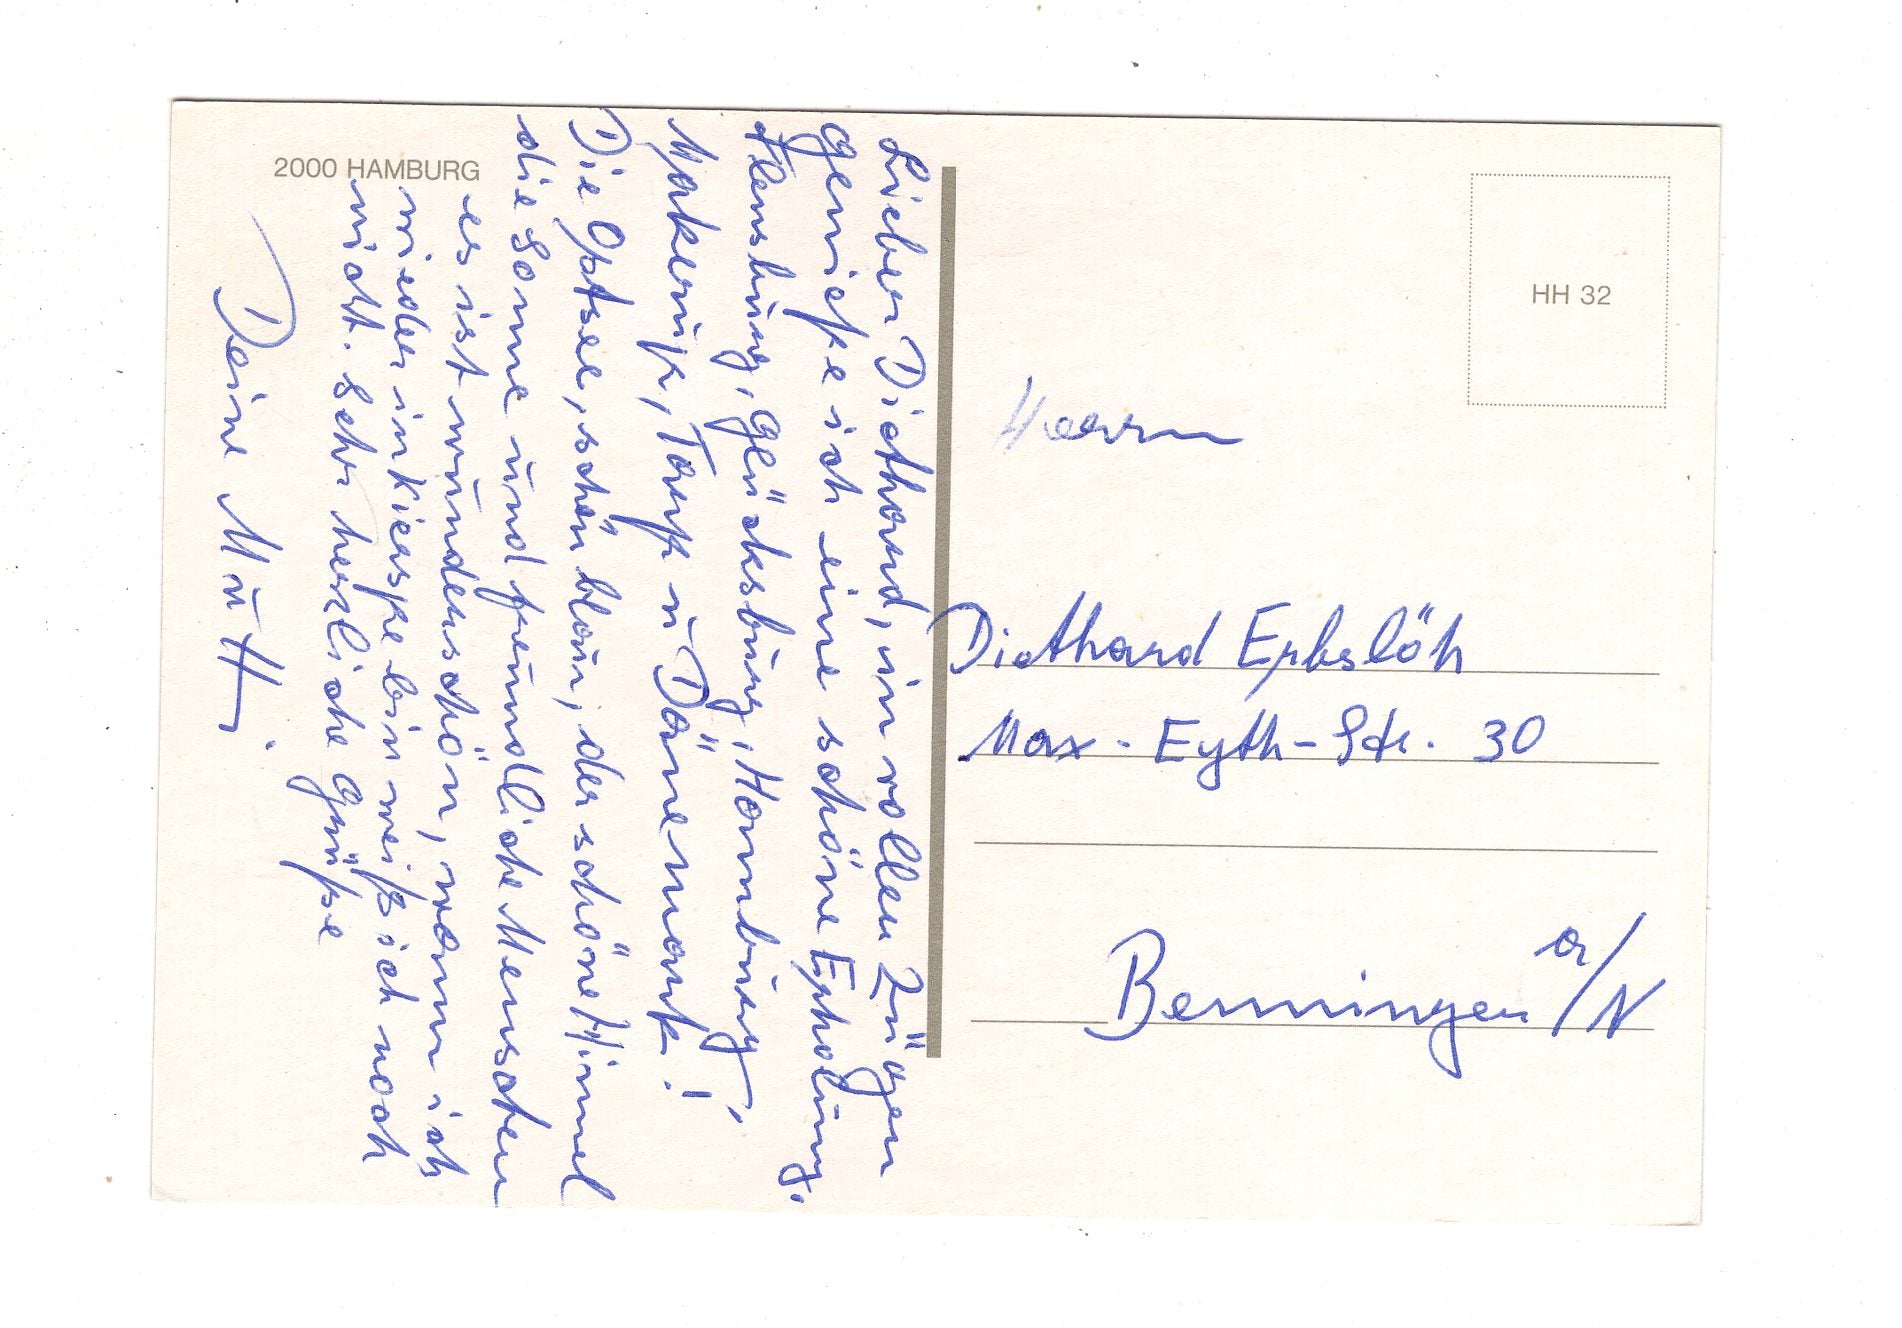 2000 HAMBURG
Lieber Diethard, in vollen Zügen
genieße ich eine schöne Erholung.
Flensburg, Glücksburg, Hamburg,
Tarp u Dänemark!
Die Ostsee, schön blau, der schöne Himmel
die Sonne und freundliche Menschen
es ist wunderschön, wann ich
wieder in Kierspe bin weiß ich noch
nicht. Sehr herzliche Grüße
Deine Mutti.
HH 32
Herrn
Diethard Erbslöh
Max-Eyth-Str. 30
Benningen a/N